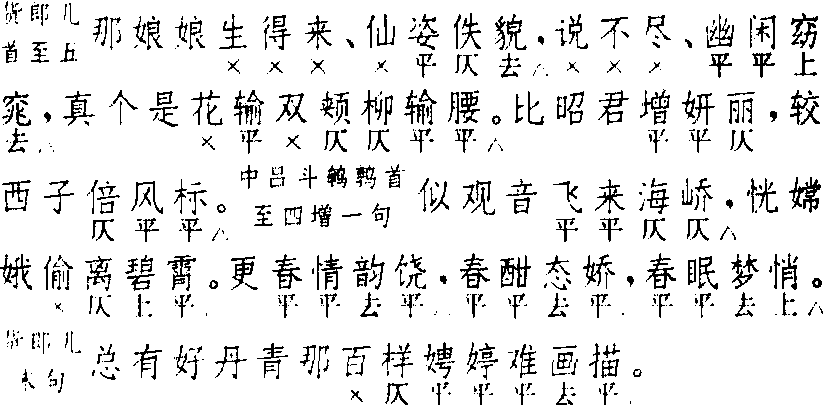 货郎儿首至五 那娘娘生得来、仙姿佚貌,说不尽、幽闲窈
× × × × 平 仄 去△ × × × 平 平 上
窕,真个是花输双颊柳输腰。比昭君增妍丽,较
去△ × 平 × 仄 仄 平 平△ 平 平 仄
西子倍风标。中吕斗鹌鹑首至四增一句 似观音飞来海峤,恍嫦
仄 平 平△ 平 平 仄 仄△
娥偷离碧霄。更春情韵饶,春酣态娇,春眠梦悄。
× 仄 上 平 平 平 去 平 平 平 去 平 平 平 去 上△
货郎儿末句 总有好丹青那百样娉婷难画描。
× 仄 平 平 平 去 平